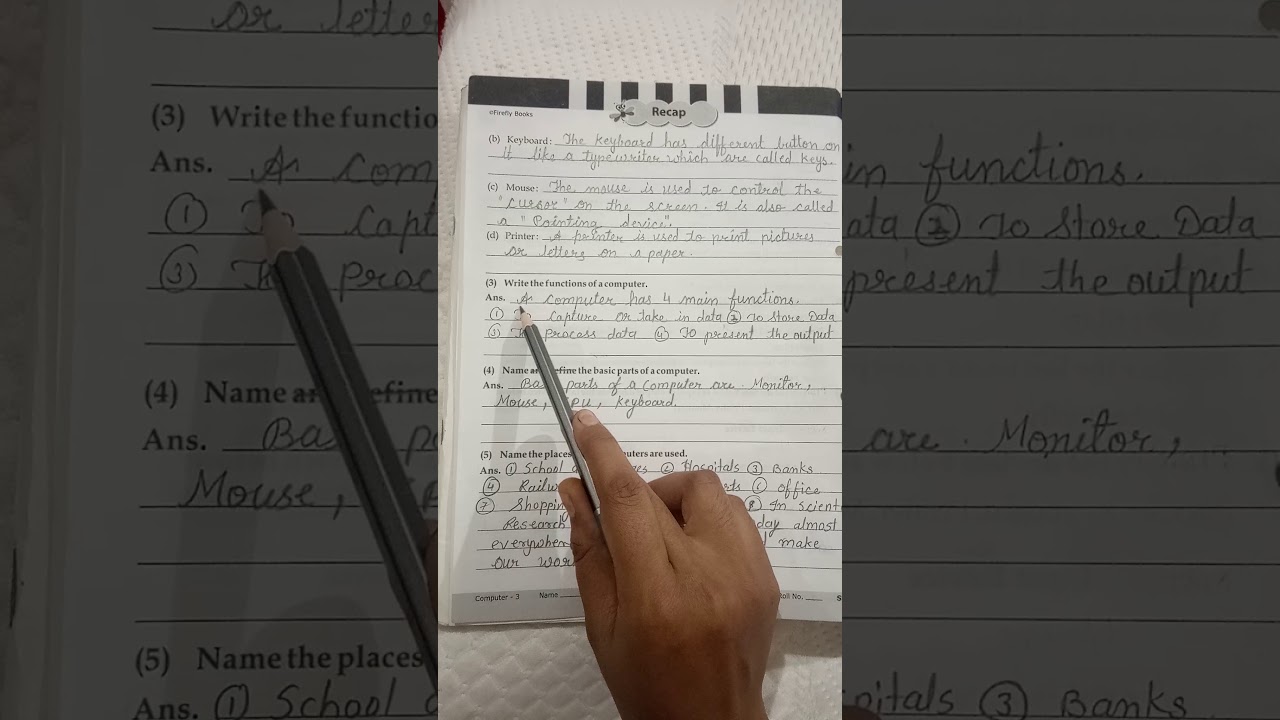 ©Firefly Books
Recap
(b) Keyboard: The keyboard has different button on
it like a typewriter which are called keys.
(c) Mouse: The mouse is used to control the
"cursor" on the screen. It is also called
a "Pointing device".
(d) Printer: A printer is used to print pictures
or letters on a paper.
(3) Write the functions of a computer.
Ans. A computer has 4 main functions.
① To capture or take in data ② To Store Data
③ process data ④ To present the output
(4) Name the basic parts of a computer.
Ans. parts of a Computer are Monitor,
Mouse, CPU, Keyboard.
(5) Name the places computers are used.
Ans. ① School ② Hospitals ③ Banks
④ ⑥ office
⑦ ⑧ In
Research almost
make
our
Computer - 3 Name Roll No.